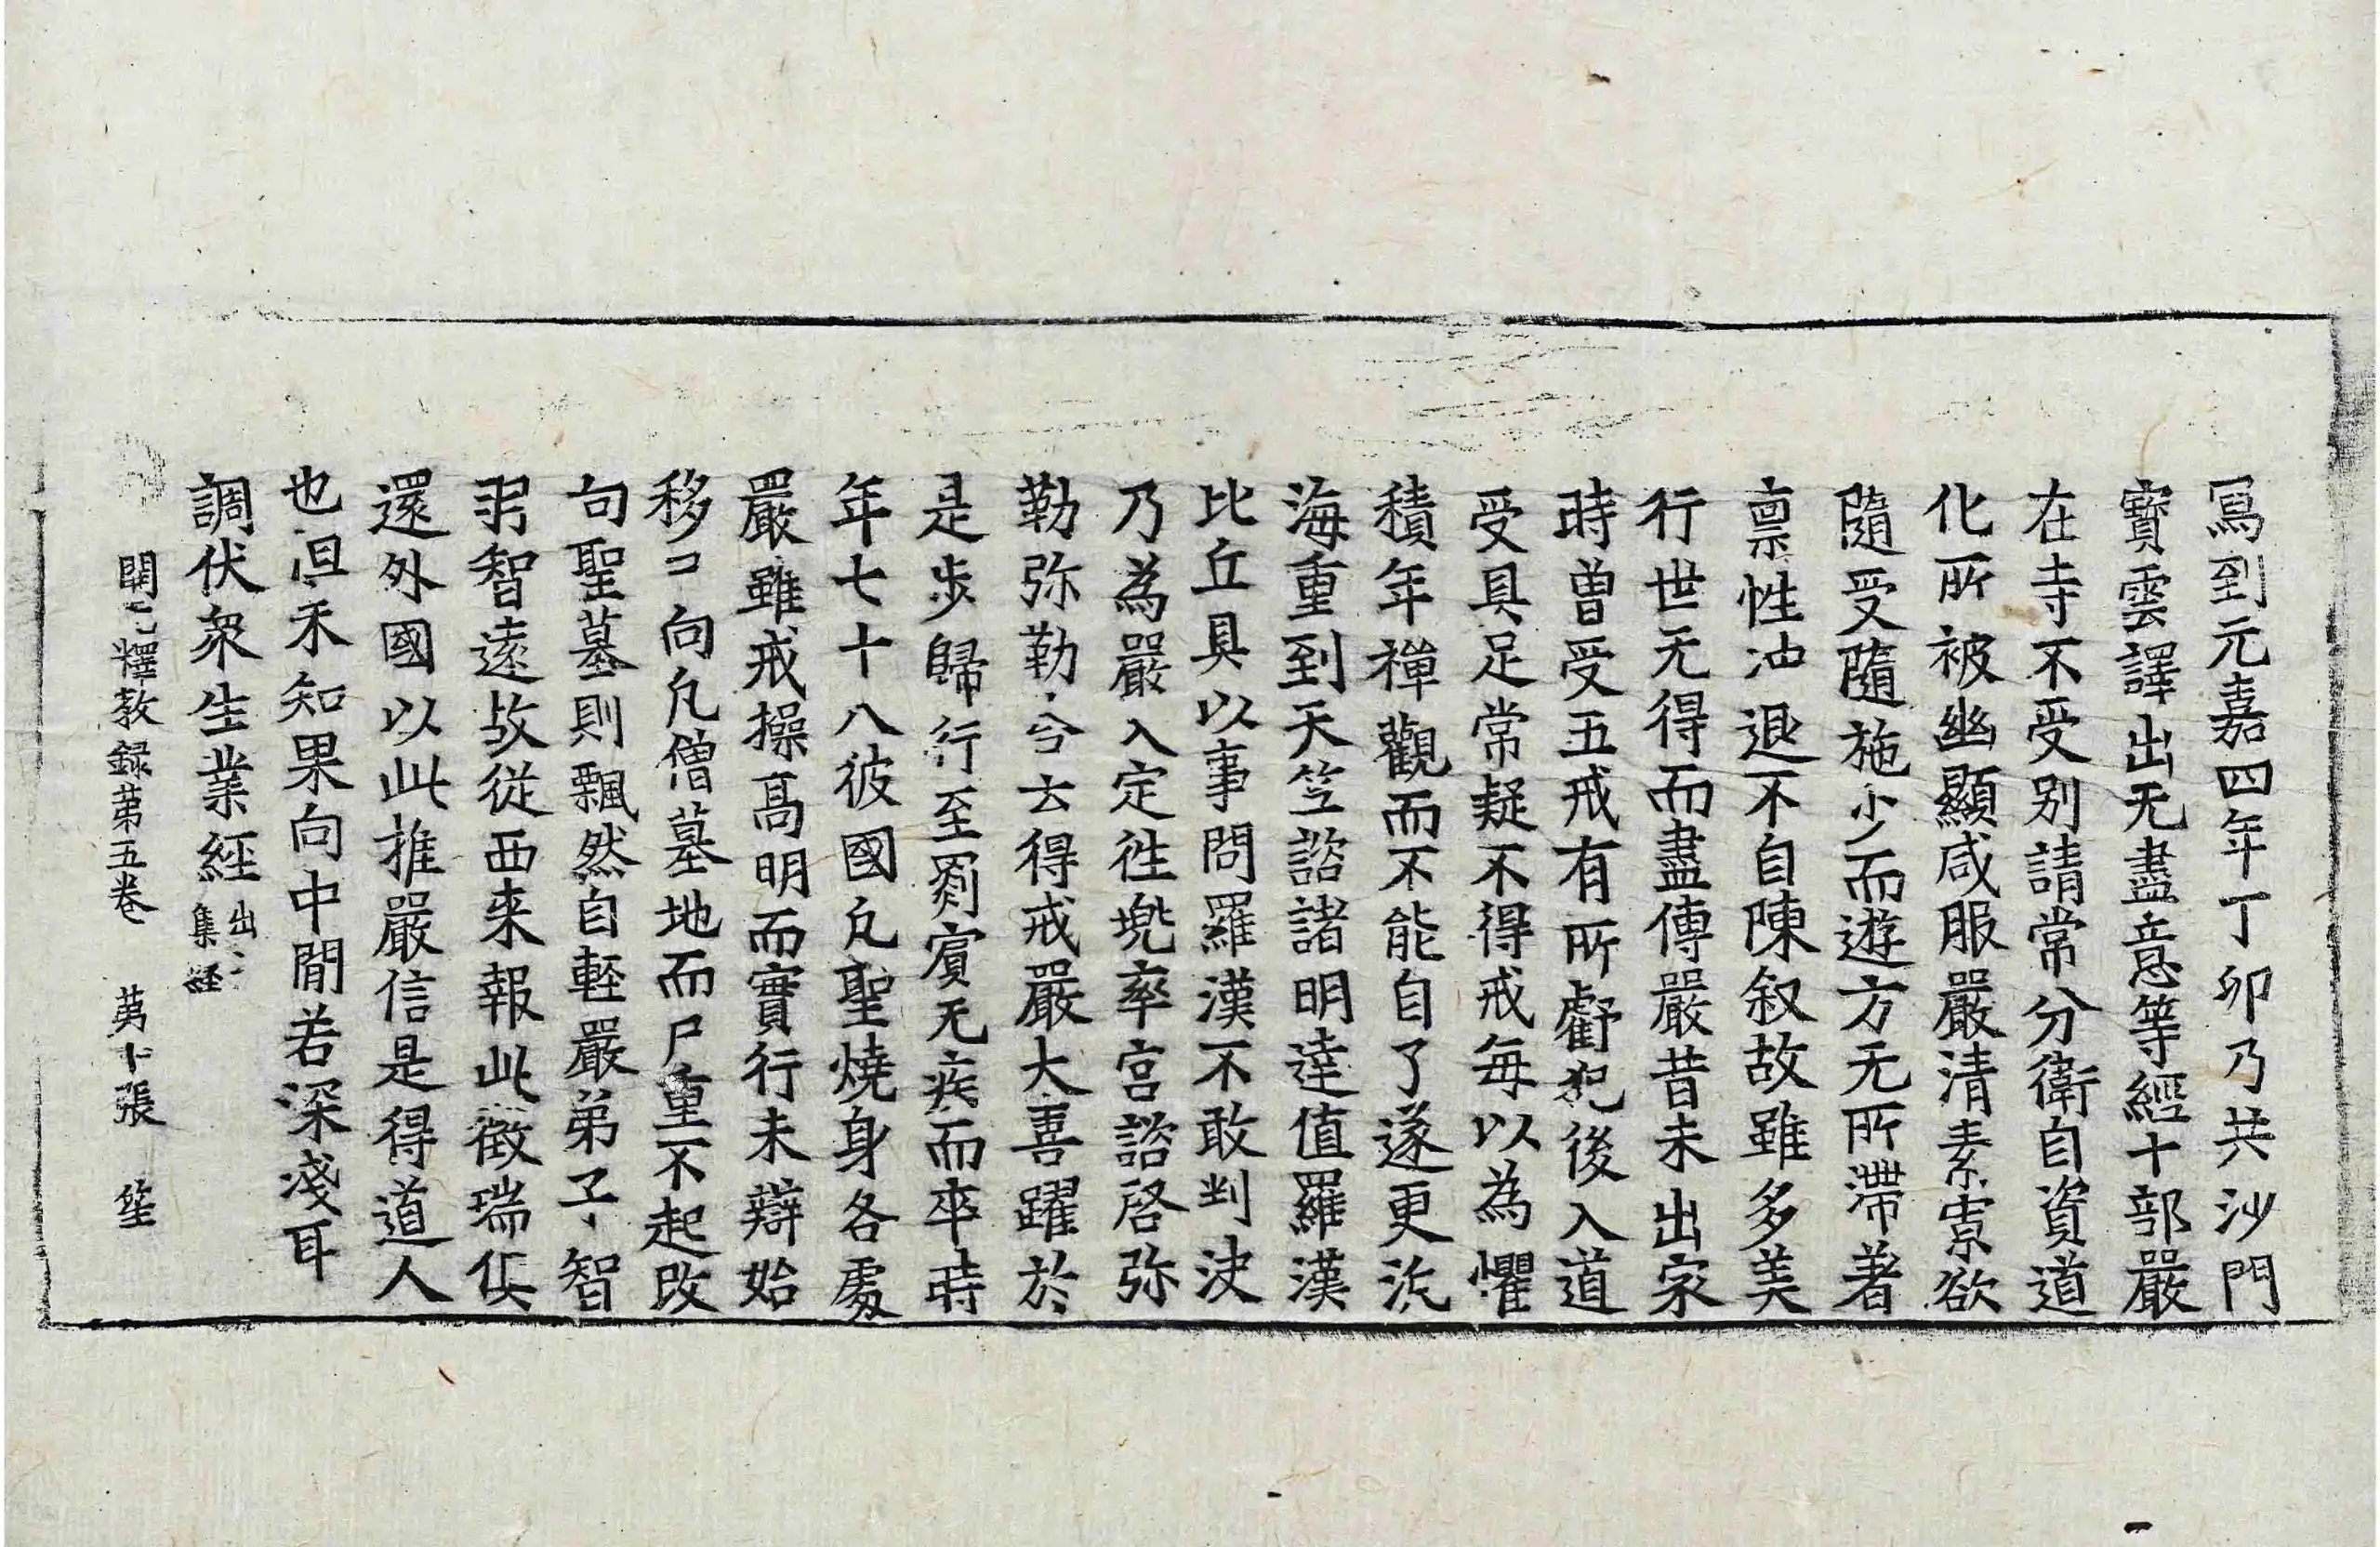 寫到元嘉四年丁卯乃共沙門
寶雲譯出无盡意等經十部嚴
在寺不受別請常分衛自資道
化所被幽顯咸服嚴清素寡欲
隨受隨施少而遊方无所滯著
禀性冲退不自陳叙故雖多美
行世无得而盡傳嚴昔未出家
時曽受五戒有所虧犯後入道
受具足常疑不得戒每以為懼
積年禪觀而不能自了遂更汎
海重到天竺諮諸明達值羅漢
比丘具以事問羅漢不敢判决
乃為嚴入定徃兠率宮諮啓弥
勒弥勒云得戒嚴大喜躍於
是步歸行至罽賔无疾而卒時
年七十八彼國凡聖燒身各處
嚴雖戒操髙明而實行未辯始
移向凡僧墓地而尸重不起改
向聖墓則飄然自軽嚴弟子智
羽智遠故從西来報此徵瑞俱
還外國以此推嚴信是得道人
也但未知果向中間若深淺耳
調伏衆生業經出集經
開元釋教録苐五卷 苐十張